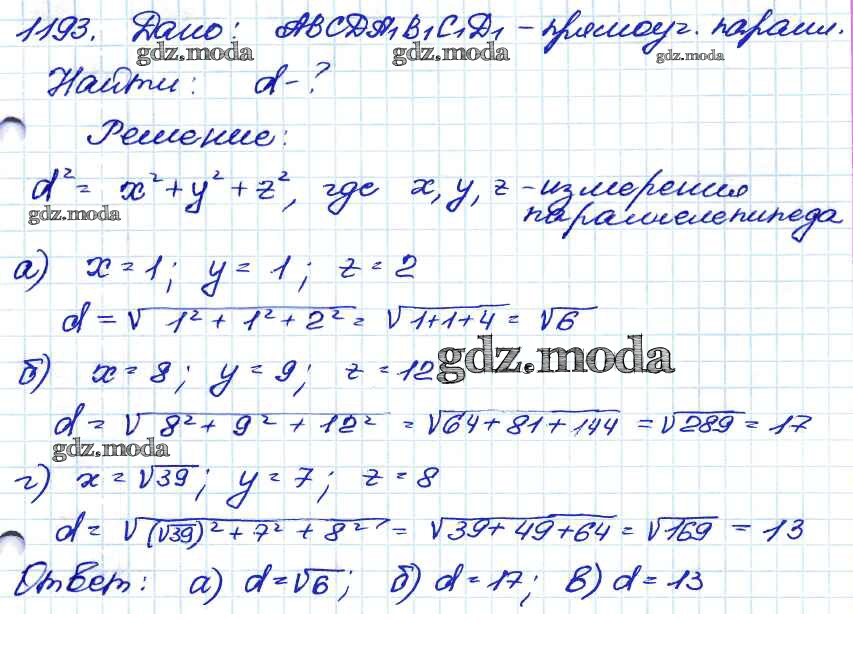 1193. Дано: ABCDA₁B₁C₁D₁ - прямоуг. паралл.
gdz.moda gdz.moda gdz.moda
Найти: d - ?
Решение:
d² = x² + y² + z², где x, y, z - измерения
gdz.moda
параллелепипеда
а) x = 1; y = 1; z = 2
d = √(1² + 1² + 2²) = √(1+1+4) = √6
gdz.moda
б) x = 8; y = 9; z = 12
d = √(8² + 9² + 12²) = √(64 + 81 + 144) = √289 = 17
gdz.moda
г) x = √39; y = 7; z = 8
d = √((√39)² + 7² + 8²) = √(39 + 49 + 64) = √169 = 13
Ответ: а) d = √6; б) d = 17; в) d = 13